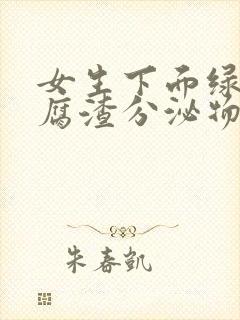 女生下而绿
腐渣分泌物
朱春凯